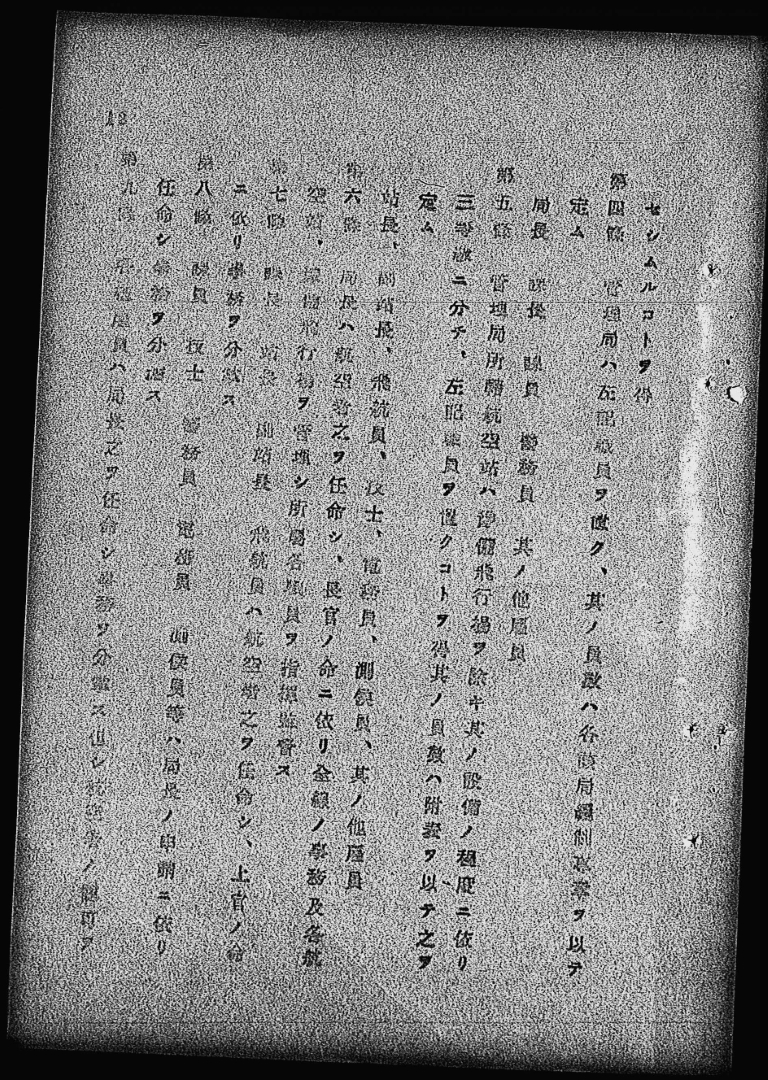 セシムルコトヲ得
第四條 管理局ハ左記職員ヲ置ク、其ノ員數ハ各該局編制專章ヲ以テ
定ム
局長 課長 課員 機務員 其ノ他雇員
第五條 管理局所轄航空站ハ準備飛行場ヲ除キ其ノ設備ノ程度ニ依リ
三等級ニ分チ、左記職員ヲ置クコトヲ得其ノ員數ハ附表ヲ以テ之ヲ
定ム
站長、副站長、飛航員、技士、電務員、測候員、其ノ他雇員
第六條 局長ハ航空署之ヲ任命シ、長官ノ命ニ依リ全線ノ事務及各航
空站、準備飛行場ヲ管理シ所屬各職員ヲ指揮監督ス
第七條 課長 站長 副站長 飛航員ハ航空署之ヲ任命シ、上官ノ命
ニ依リ事務ヲ分掌ス
第八條 課員 技士 機務員 電務員 測候員等ハ局長ノ申請ニ依リ
任命シ 務ヲ分 ス
第九條 雇員ハ局長之ヲ任命シ事務ヲ分掌ス但シ航空署ノ認可ヲ
12